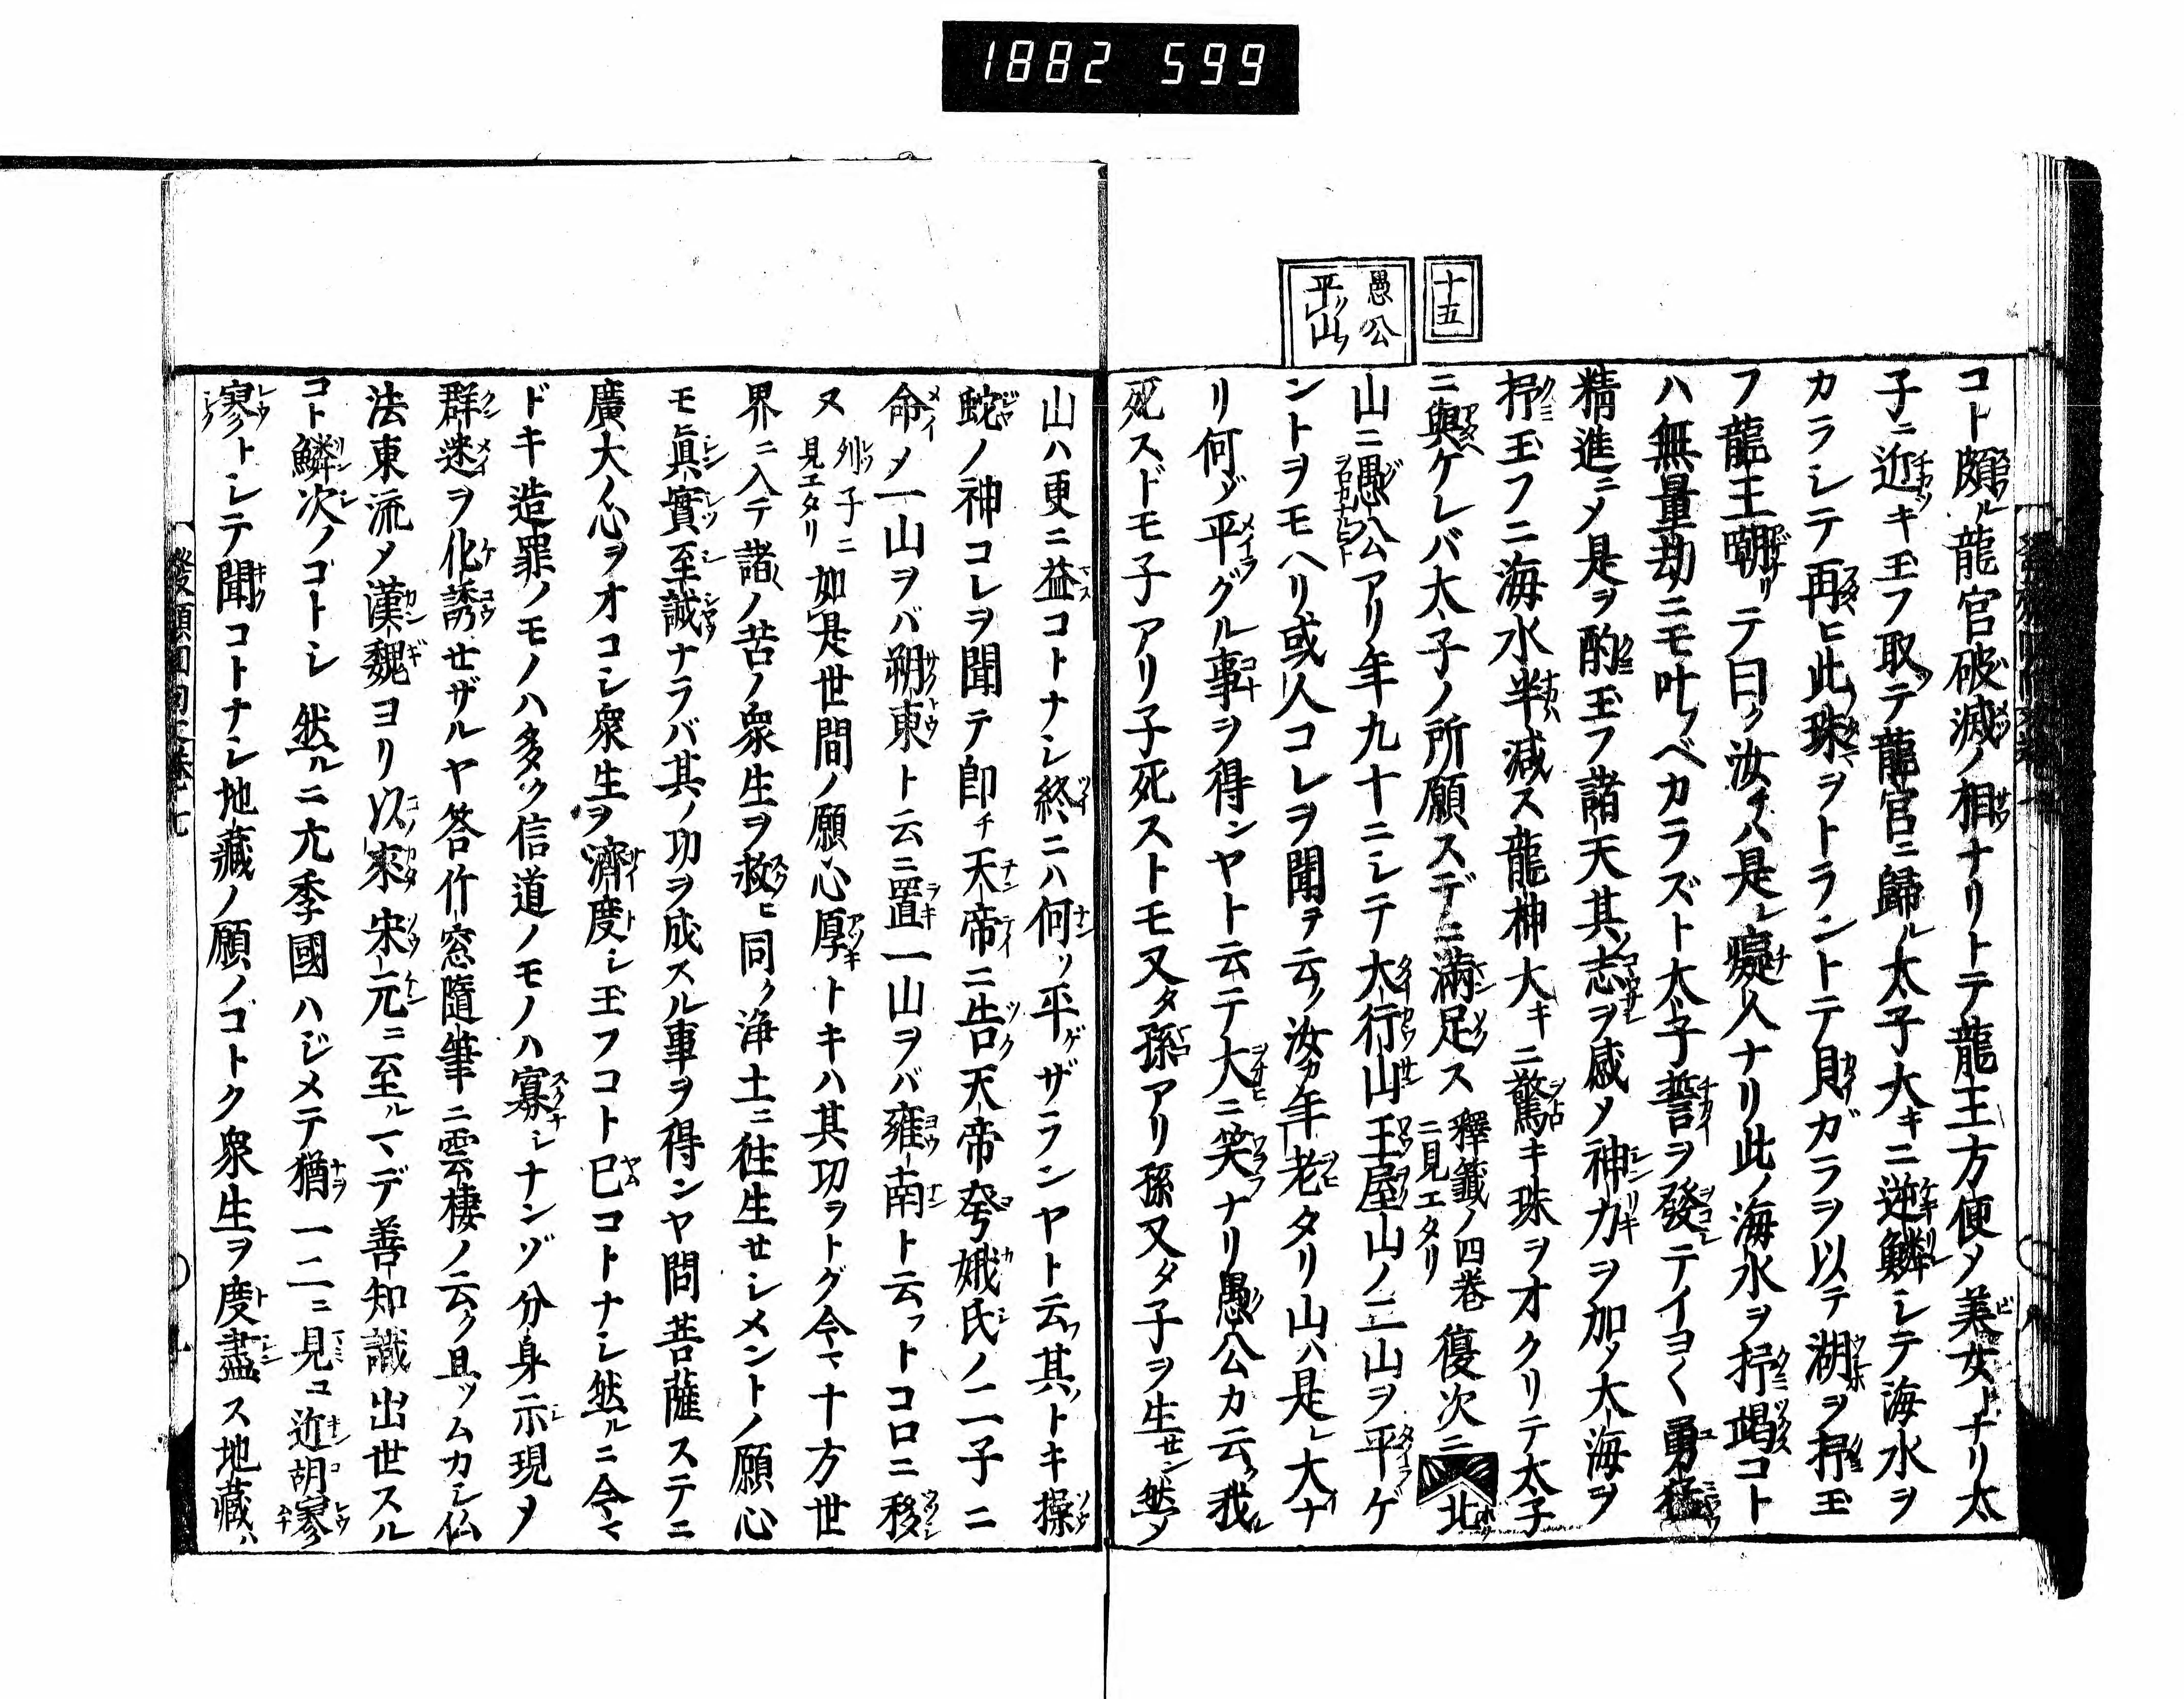 1882 599
十五
愚公
平山
コト頗ル龍宮破滅ノ相ナリトテ龍王方便〆美女トナリ太
子ニ近ツキ玉フ取テ龍宮ニ歸ル太子大キニ逆鱗シテ海水ヲ
カラシテ再ヒ此珠ヲトラントテ貝ガラヲ以テ湖ヲ抒玉
フ龍王嘲リテ曰ク汝ハ是レ癡人ナリ此ノ海水ヲ抒竭コト
ハ無量劫ニモ叶フベカラズト太子誓ヲ發テイヨ〱勇猛
精進ニ〆是ヲ酌玉フ諸天其志ヲ感〆神力ヲ加ヘ大海ヲ
抒玉フニ海水半減ス龍神大キニ驚キ珠ヲオクリテ太子
ニ與ケレバ太子ノ所願スデニ滿足ス釋籤ノ四巻ニ見エタリ復次ニ北
山ニ愚公アリ年九十ニシテ大行山王屋山ノ二山ヲ平ゲ
ントヲモヘリ或人コレヲ聞ヲ云ク汝カ年老タリ山ハ是レ大ナ
リ何ゾ平グル事ヲ得ンヤト云テ大ニ笑ナリ愚公カ云ク我レ
死スドモ子アリ子死ストモ又タ孫アリ孫又タ子ヲ生セン然〆
山ハ更ニ益コトナシ終ニハ何ソ平ゲザランヤト云フ其トキ操
蛇ノ神コレヲ聞テ即チ天帝ニ告天帝夸娥氏ノ二子ニ
命〆一山ヲバ朔東ト云ニ置一山ヲバ雍南ト云フトコロニ移
ヌ列子ニ見エタリ如是世間ノ願心厚トキハ其功ヲトグ今マ十方世
界ニ入テ諸ノ苦ノ衆生ヲ救ヒ同ク浄土ニ徃生セシメントノ願心
モ眞實至誠ナラバ其ノ功ヲ成スル事ヲ得ンヤ問菩薩ステニ
廣大ノ心ヲオコシ衆生ヲ濟度シ玉フコト已コトナシ然ルニ今マ
ドキ造罪ノモノハ多ク信道ノモノハ寡シナンゾ分身示現〆
群迷ヲ化誘せザルヤ答竹窓隨筆ニ雲棲ノ云ク且ツムカシ仏
法東流〆漢魏ヨリ以來宋元ニ至ルマデ善知識出世スル
コト鱗次ノゴトシ然ルニ亢季國ハジメテ猶一二ニ見ユ近胡寥
寥トシテ聞コトナシ地藏ノ願ノゴトク衆生ヲ度盡ス地藏ハ